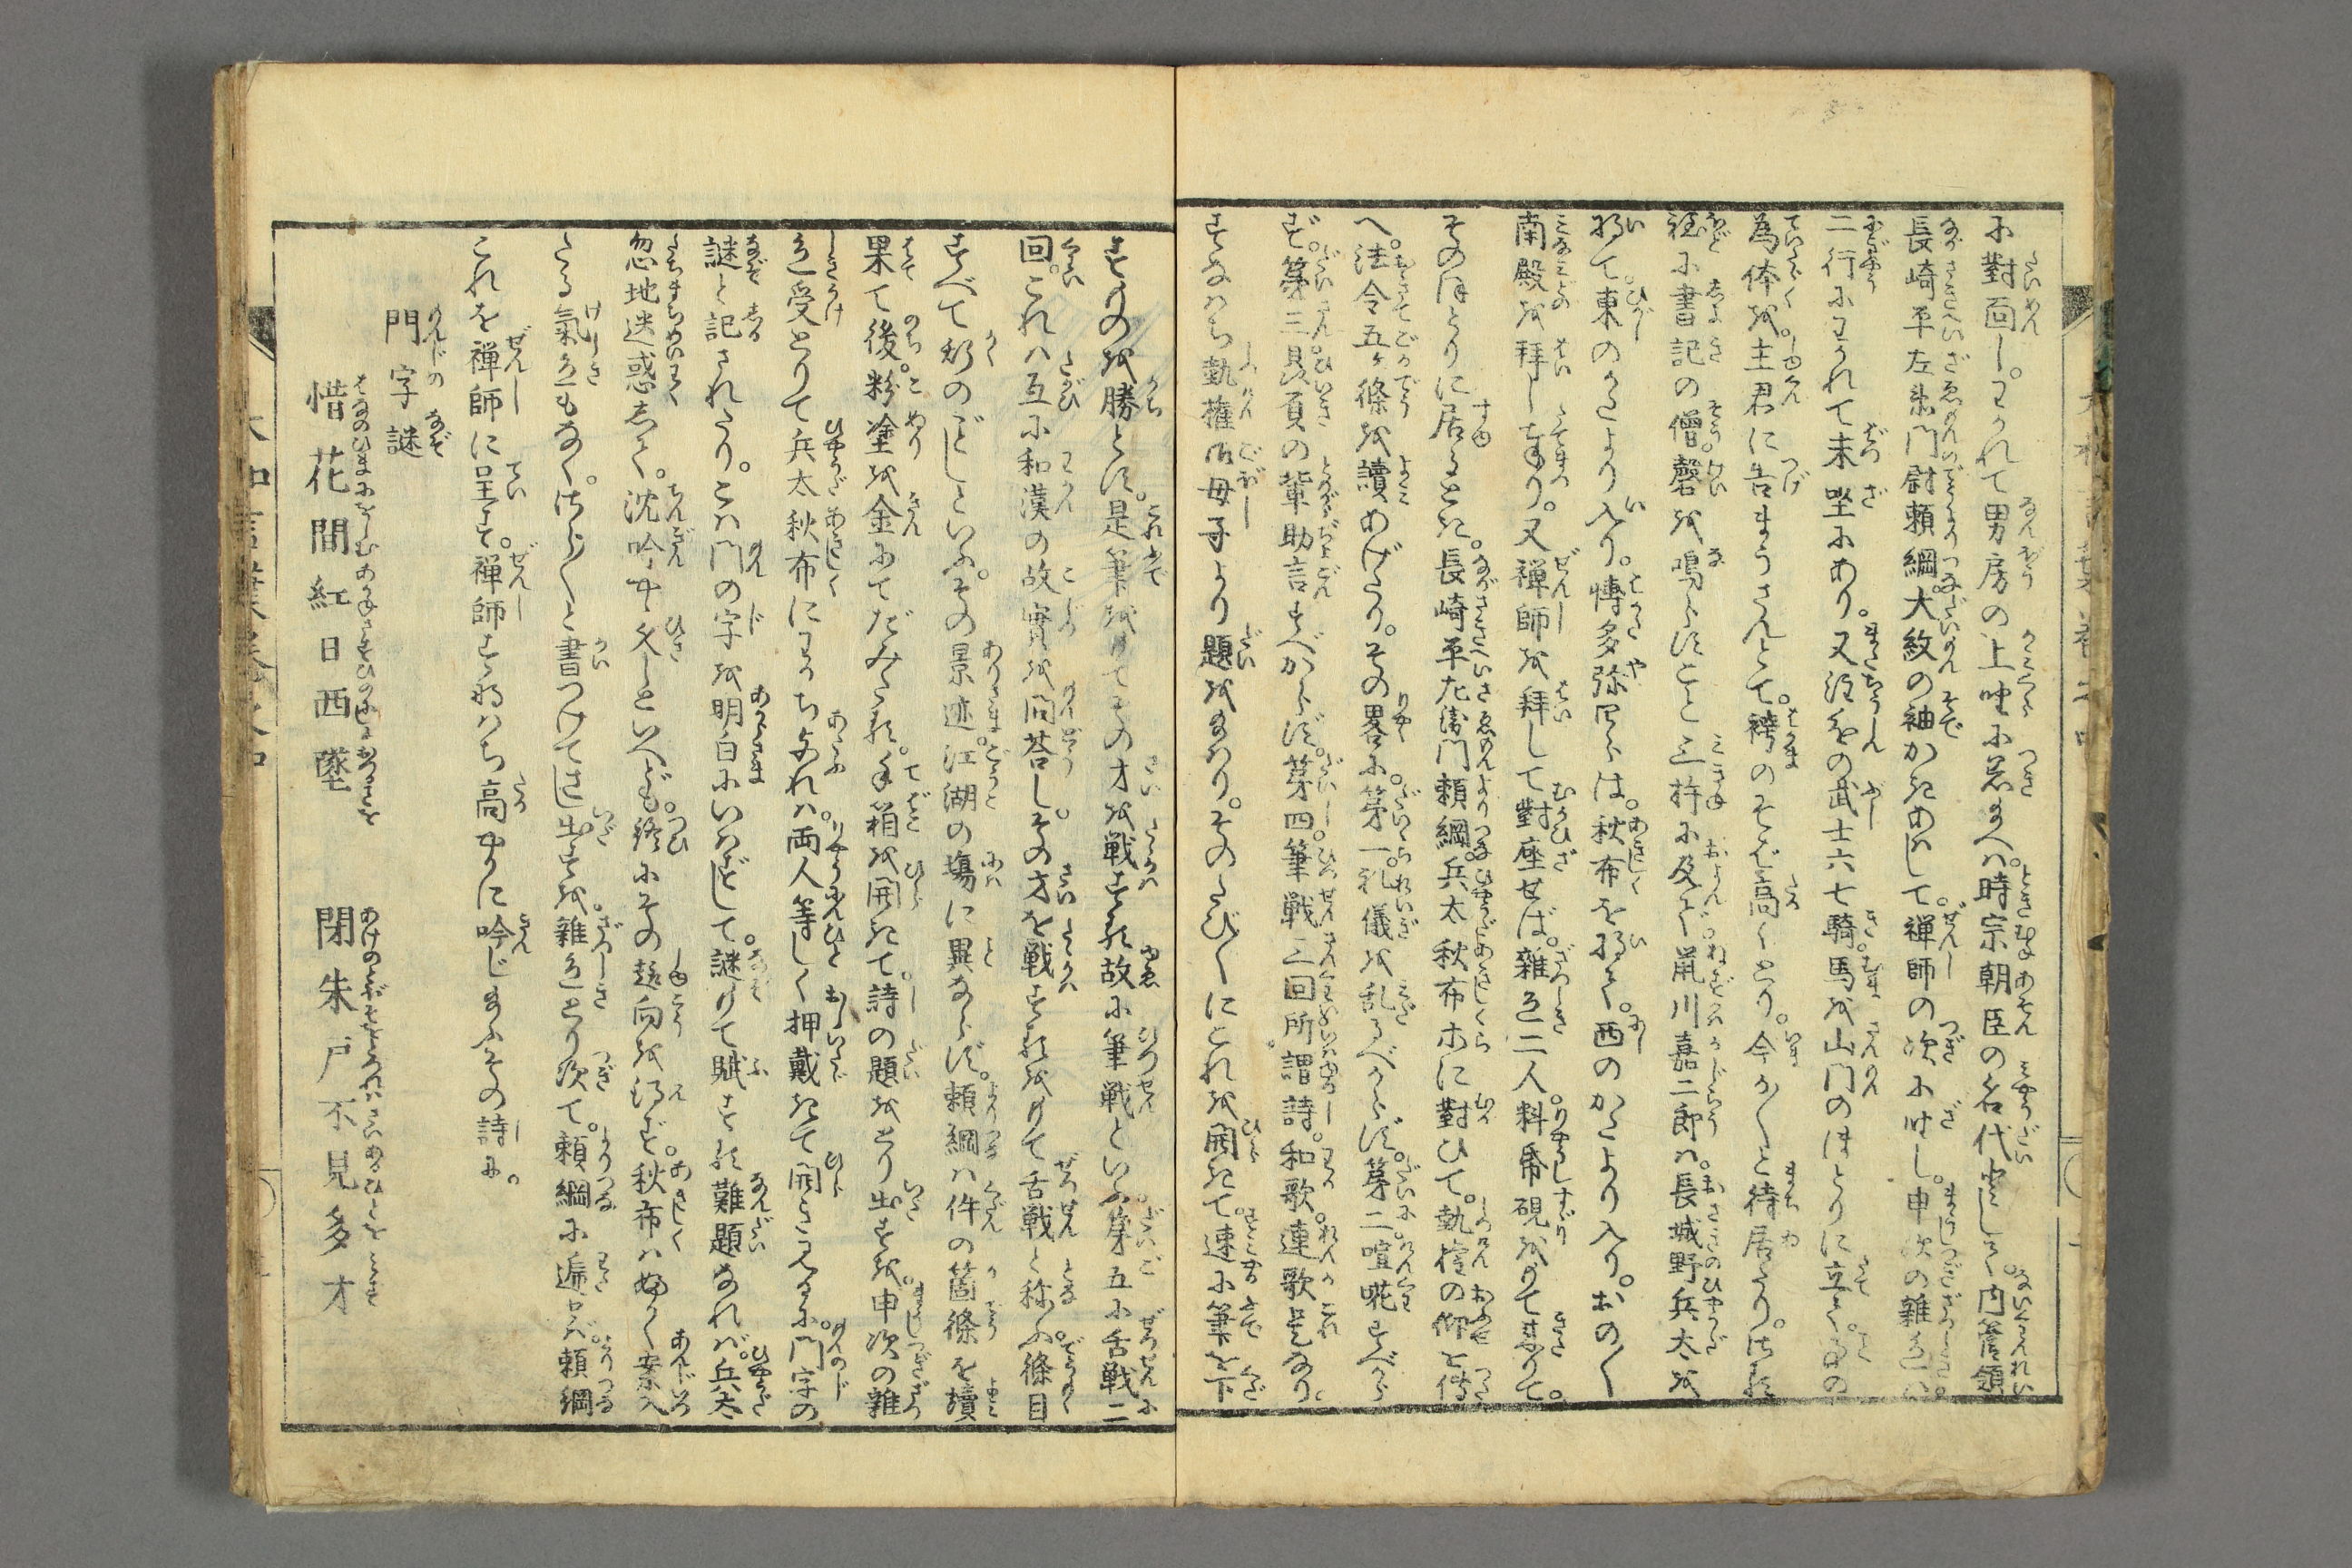 に對面し。わかれて男房の上座に着給へば。時宗朝臣の名代として。内管領
長崎平左衛門尉頼綱。大紋の袖かきあはして。禅師の次に坐し。申次の雑色は
二行にわかれて末坐にあり。又註進の武士六七騎。馬を山門のほとりに立て。事の
為体を。主君に告まうさんとて。袴のそば高くとり。今か〱と待居たり。かゝる
程に書記の僧。磬を鳴らすこと三杵に及べば。鼠川嘉二郎は。長城野兵太を
将て。東のかたより入り。博多弥四郎は。秋布を将て。西のかたより入り。おの〱
南殿を拜し奉り。又禅師を拜して對座せば。雑色二人。料帋硯をもて来りて。
そのほとりに居ゑおき。長崎平左衛門頼綱。兵太秋布ホに對ひて。執権の仰を傳
へ。法令五ヶ條を讀あげたり。その畧に。第一。礼儀を乱るべからず。第二。喧嘩すべから
ず。第三。贔負の輩助言すべからず。第四。筆戦三回所謂詩。和歌。連歌是なり。
すなはち執権御母子より題をまゐり。そのたび〱にこれを開きて。速に筆を下
すものを勝とす。是筆をもてその才を戦する故に筆戦といふ。第五に舌戦二
回。これは互に和漢の故實を問荅し。その才を戦するをもて舌戦と称ふ。條目
すべて斯のごとしといふ。その景迹江湖の塲に異ならず。頼綱は件の箇條を讀
果て後。粉塗を金にてだみたる。手箱を開きて。詩の題をとり出すを。申次の雑
色受とりて兵太秋布にわかち與れば。両人等しく押戴きて開き見るに。門字の
謎と記されたり。こは門の字を明白にいはずして。謎もて賦する難題なれば。兵太
忽地迷惑して。沈吟中久しといへども。終にその趣向を得ず。秋布は毎く案入
たる氣色もなく。さら〱と書つけてさし出すを。雑色とり次て。頼綱に遞与ば。頼綱
これを禅師に呈す。禅師すなはち高やかに吟じ給ふその詩に。
門字謎
惜花間紅日西墜　閉朱戸不見多才